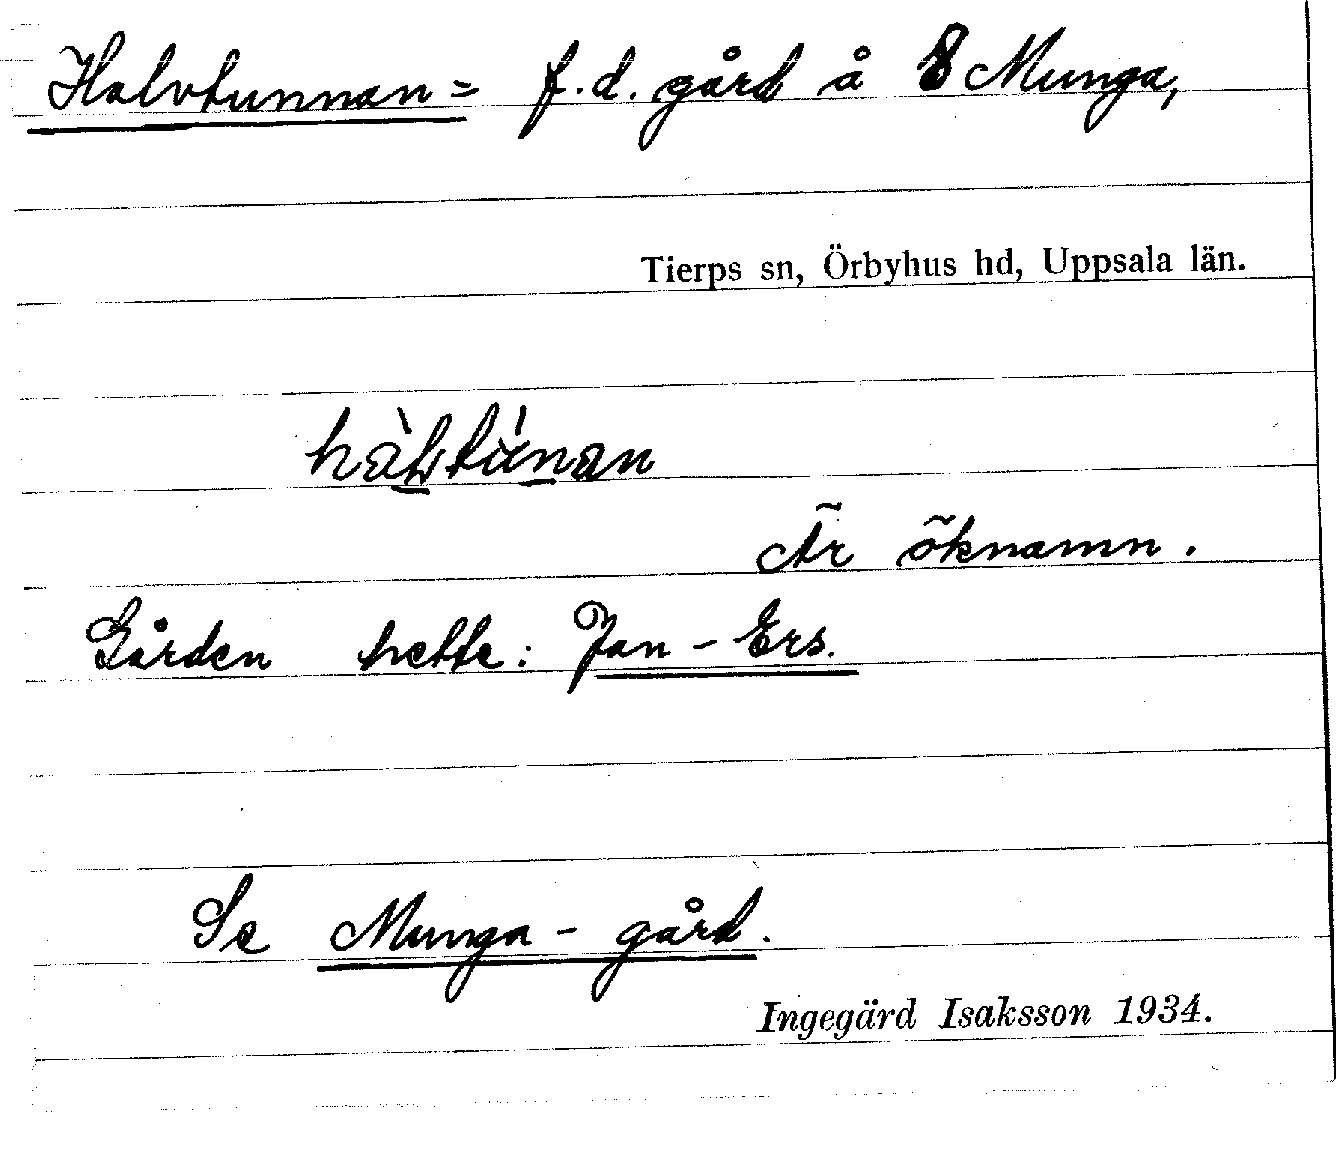 Halvtunnan = f.d. gård å 8 Munga,
Tierps sn, Örbyhus hd, Uppsala län.
Är öknamn.
Gården hette: Jan-Ers.
Se Munga-gård.
Ingegärd Isaksson 1934.